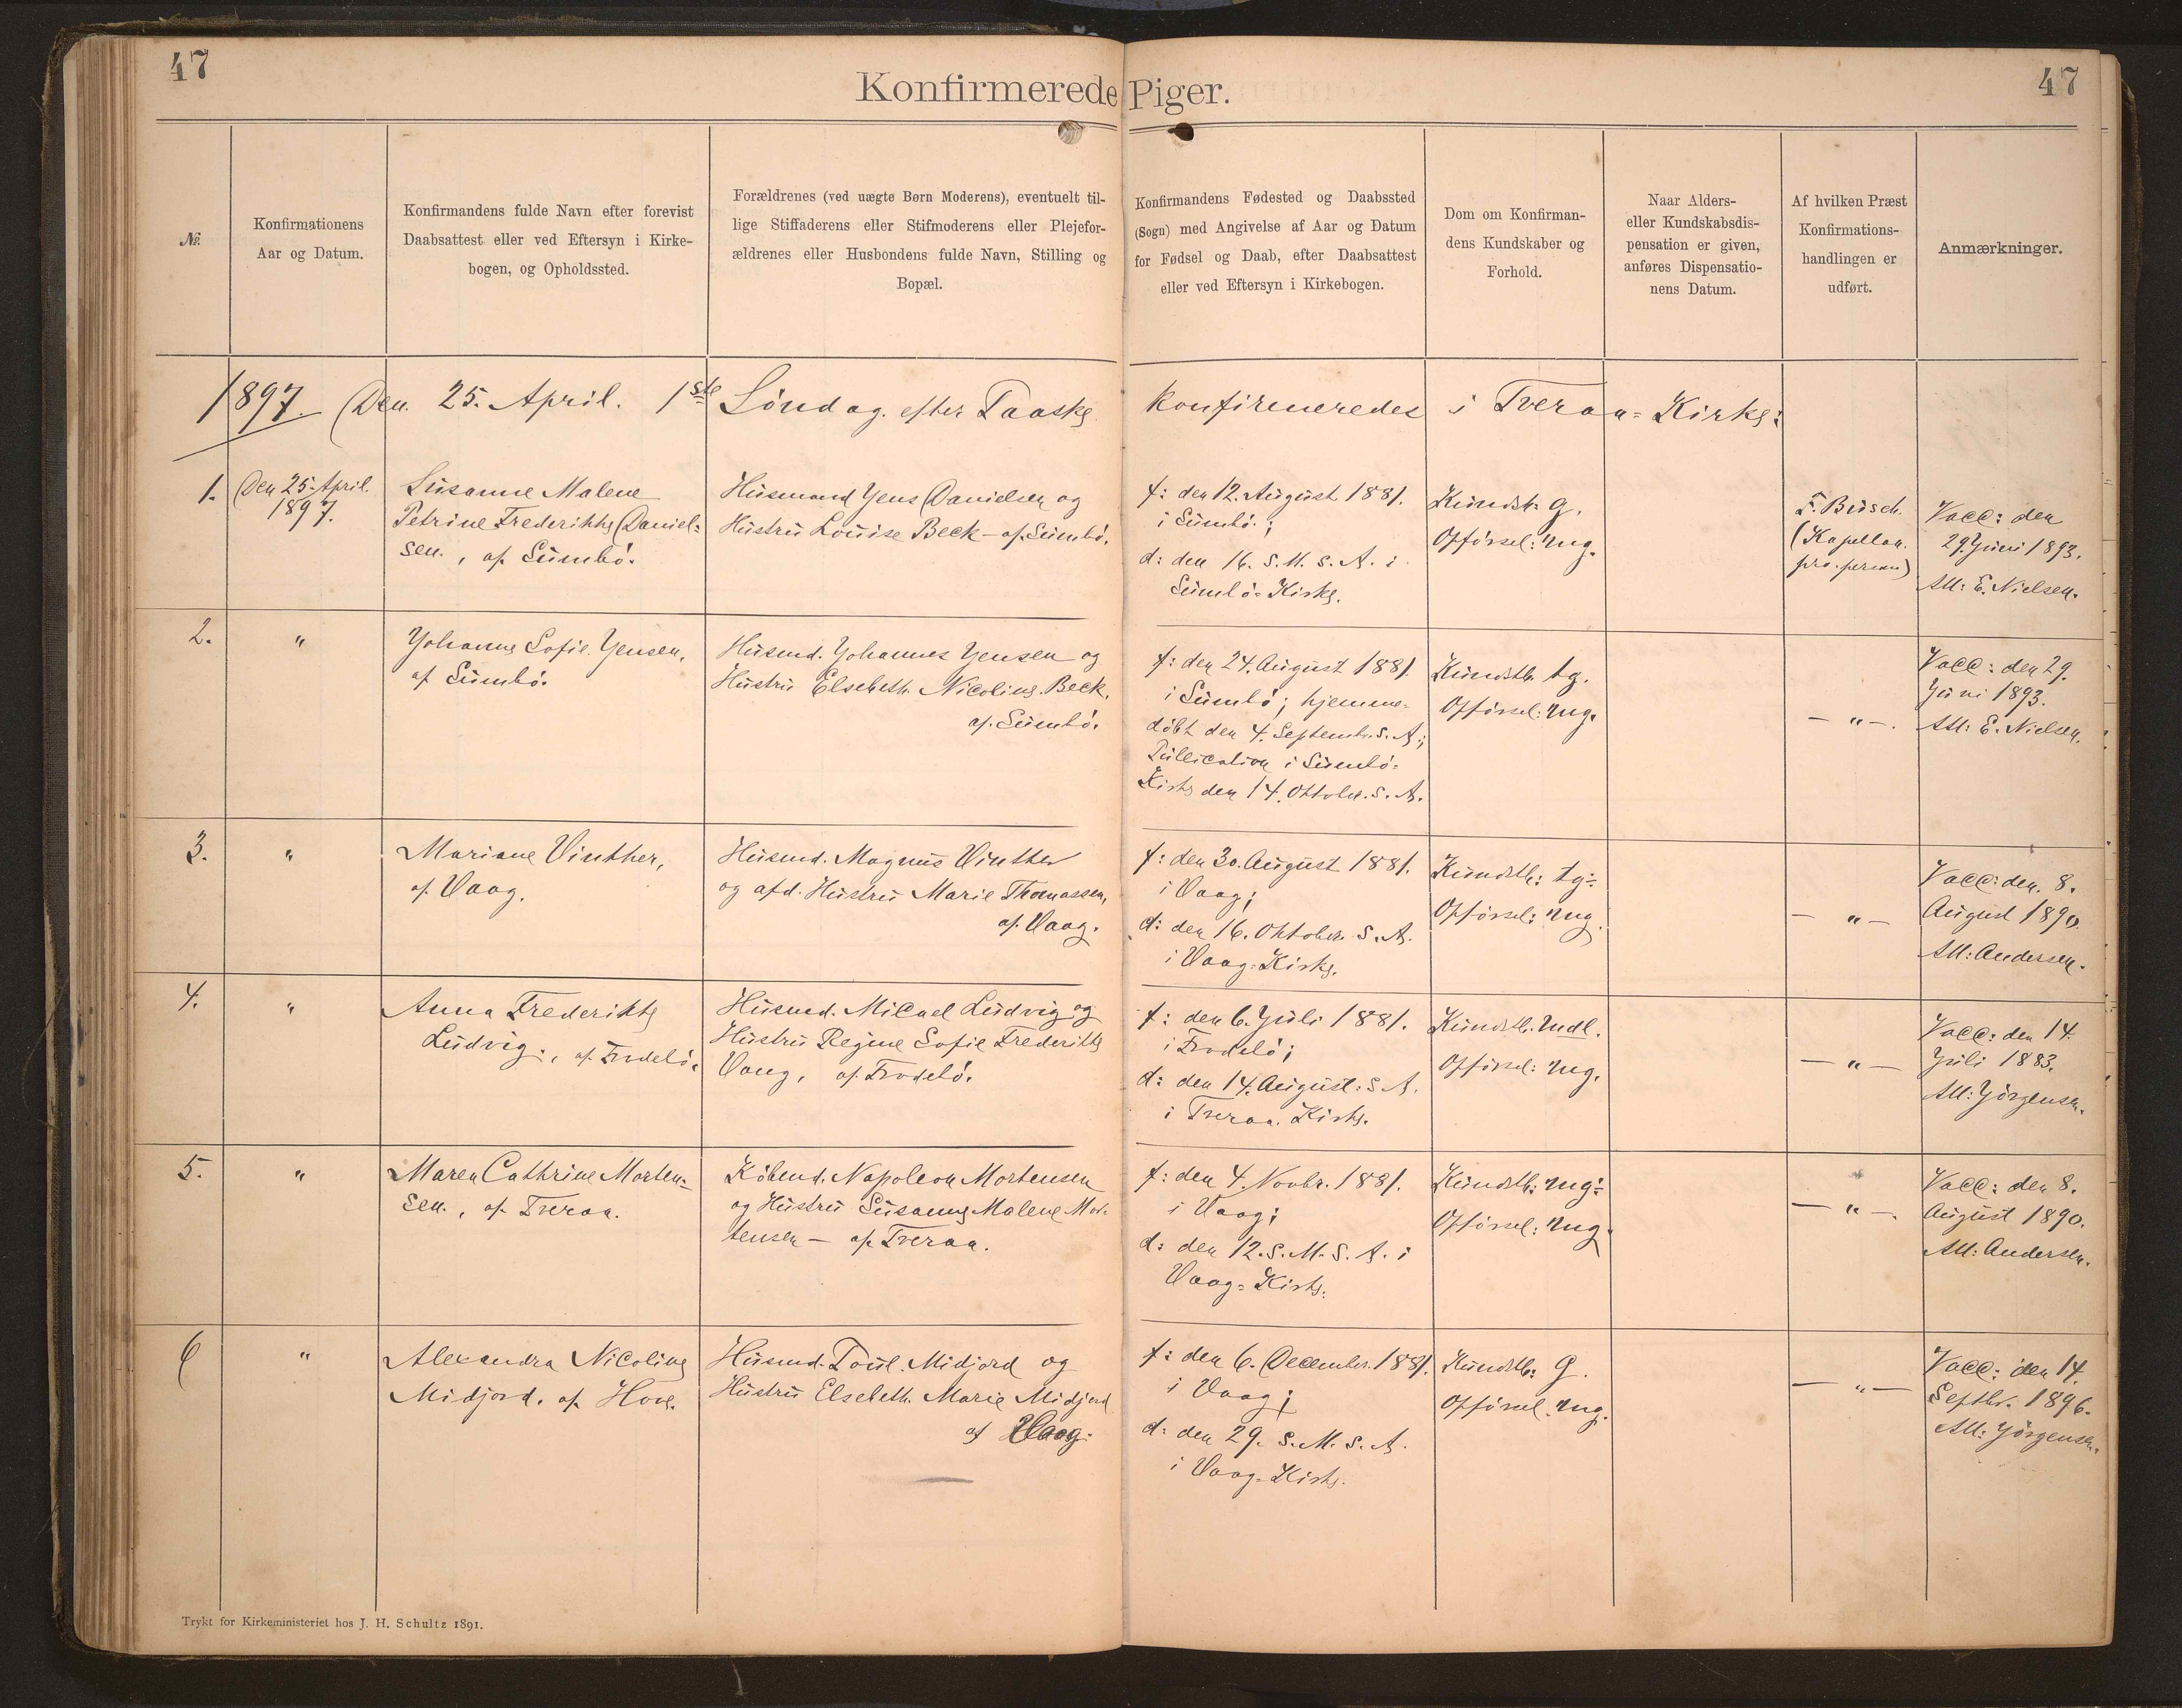 47
47
Konfirmerede Piger.
No.
Konfirmationens
Aar og Datum.
Konfirmandens fulde Navn efter forevist
Daabsattest eller ved Eftersyn i Kirke-
bogen, og Opholdssted.
Forældrenes (ved uægte Børn Moderens), eventuelt til-
lige Stiffaderens eller Stifmoderens eller Plejefor-
ældrenes eller Husbondens fulde Navn, Stilling og
Bopæl.
Konfirmandens Fødested og Daabssted
(Sogn) med Angivelse af Aar og Datum
for Fødsel og Daab, efter Daabsattest
eller ved Eftersyn i Kirkebogen.
Dom om Konfirman-
dens Kundskaber og
Forhold.
Naar Alders-
eller Kundskabsdis-
pensation er given,
anføres Dispensatio-
nens Datum.
Af hvilken Præst
Konfirmations-
handlingen er
udført.
Anmærkninger.
1897. Den 25. April. 1ste Søndag efter Paaske konfirmeredes i Tveraa-Kirke:
1.
Den 25. April.
1897.
Susanne Malene
Petrine Frederikke Daniel-
sen., af Sumbö.
Husmand Jens Danielsen og
Hustru Louise Beck - af Sumbö.
f: den 12. August 1881.
i Sumbö.;
d: den 16. s. M. s. A. i
Sumbö-Kirke.
Kundsk: g.
Opförsel: mg.
F. Busch.
(Kapellan.
pro. person)
Vacc: den
29. Juni 1893.
Att: E. Nielsen.
2.
"
Johanne Sofie Jensen,
af Sumbö.
Husmd. Johannes Jensen og
Hustru Elsebeth. Nicoline. Beck,
af. Sumbö.
f: den 24. August 1881
i Sumbö; hjemme-
döbt den 4. Septembr. s. A.;
Publication i Sumbö-
Kirke den 14. Oktober. s. A.
Kundsk. tg.
Opförsel: mg.
- " -.
Vacc: den 29.
Juni 1893.
Att: E. Nielsen.
3.
"
Mariane Vinther,
af. Vaag.
Husmd. Magnus Vinther
og afd. Hustru Marie Thomassen,
af. Vaag.
f: den 30. August 1881.
i Vaag;
d: den 16. Oktober. s. A.
i Vaag-Kirke.
Kundsk: tg÷
Opförsel: mg.
- " -
Vacc: den. 8.
August 1890.
Att: Andersen.
4.
"
Anna Frederikke
Ludvig., af. Frodebö.
Husmd. Micael Ludvig og
Hustru Regine Sofie Frederikke
Vang, af. Frodebö.
f: den 6. Juli 1881.
i Frodebö;
d: den 14. August: s A.
i Tveraa. Kirke.
Kundsk. mdl.
Opförsel: mg.
- " -
Vacc: den 14.
Juli 1883.
Att: Jörgensen.
5.
"
Maren Cathrine Morten-
sen., af. Tveraa.
Köbmd. Napoleon Mortensen
og Hustru Susanne Malene Mor-
tensen - af. Tveraa.
f: den 4. Novbr. 1881.
i Vaag;
d: den 12. s. M. s. A. i
Vaag-Kirke.
Kundsk: mg÷
Opförsel: mg.
- " -.
Vacc: den 8.
August 1890.
Att: Andersen.
6
"
Alexandra Nicoline
Midjord. af. Hove.
Husmd. Poul. Midjord og
Hustru Elsebeth. Marie Midjord
af Vaag.
f: den 6. December. 1881.
i Vaag;
d: den 29. s. M. s. A.
i Vaag-Kirke.
Kundsk: g.
Opförsel. mg.
- " -
Vacc: den 14.
Septbr. 1896.
Att: Jörgensen.
Trykt for Kirkeministeriet hos J. H. Schultz 1891.